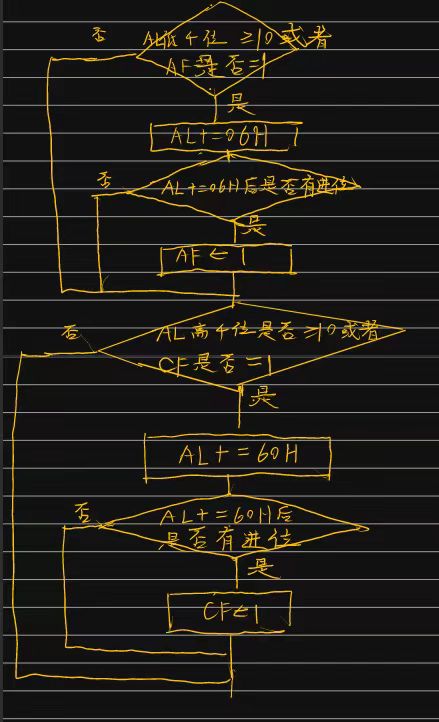 否
AL低4位 ≥10或者
AF是否=1
是
AL+=06H
否
AL+=06H后是否有进位
是
AF←1
否
AL高4位是否≥10或者
CF是否=1
是
AL+=60H
否
AL+=60H后
是否有进位
是
CF←1